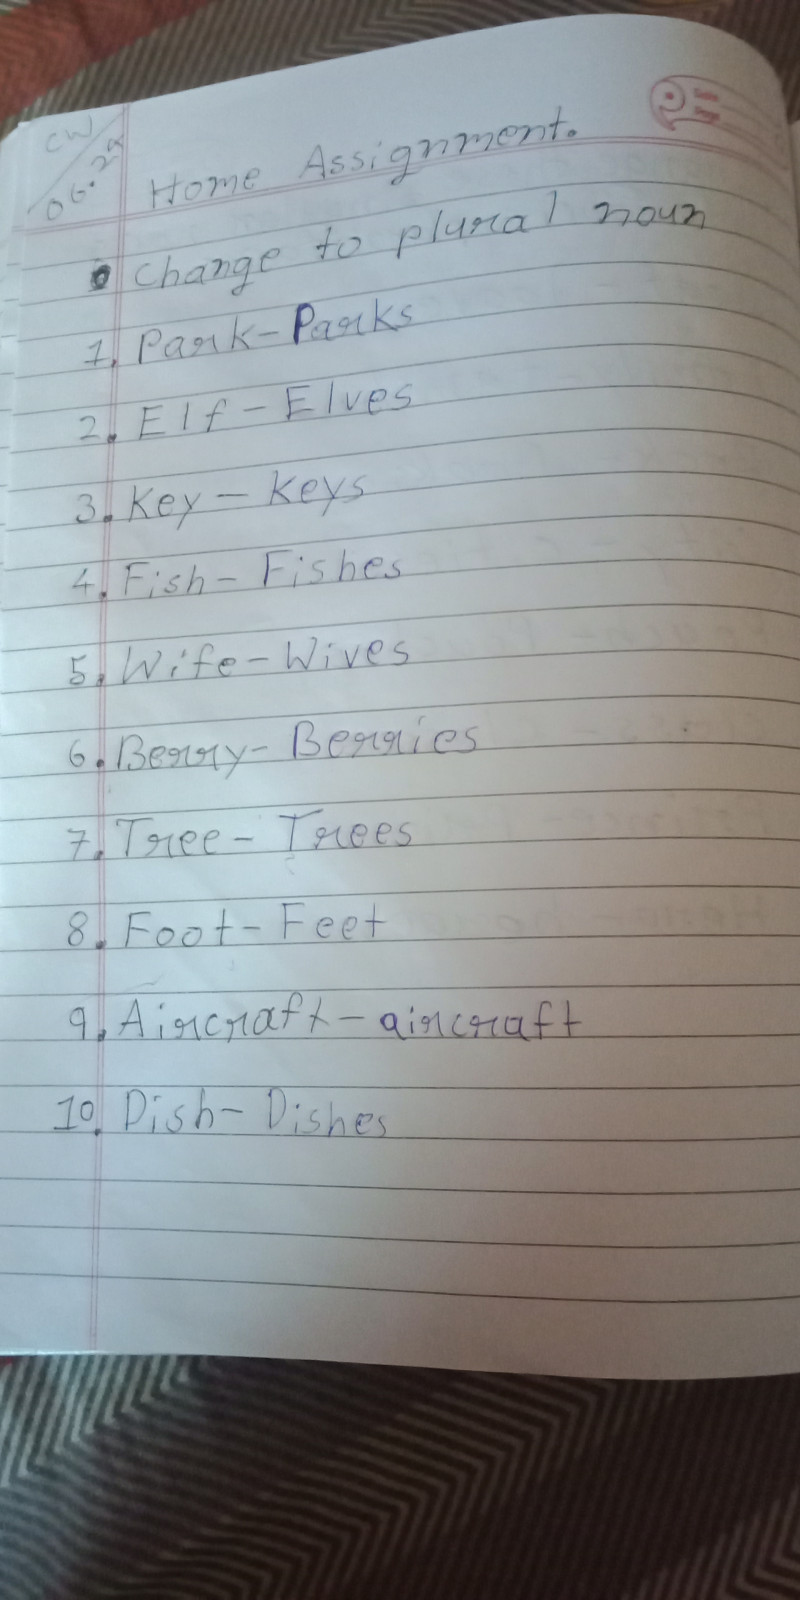 CW
06.29
Home Assignment.
Change to plural noun
1. Park - Parks
2. Elf - Elves
3. Key - keys
4. Fish - Fishes
5. Wife - Wives
6. Berry - Berries
7. Tree - Trees
8. Foot - Feet
9. Aircraft - aircraft
10. Dish - Dishes